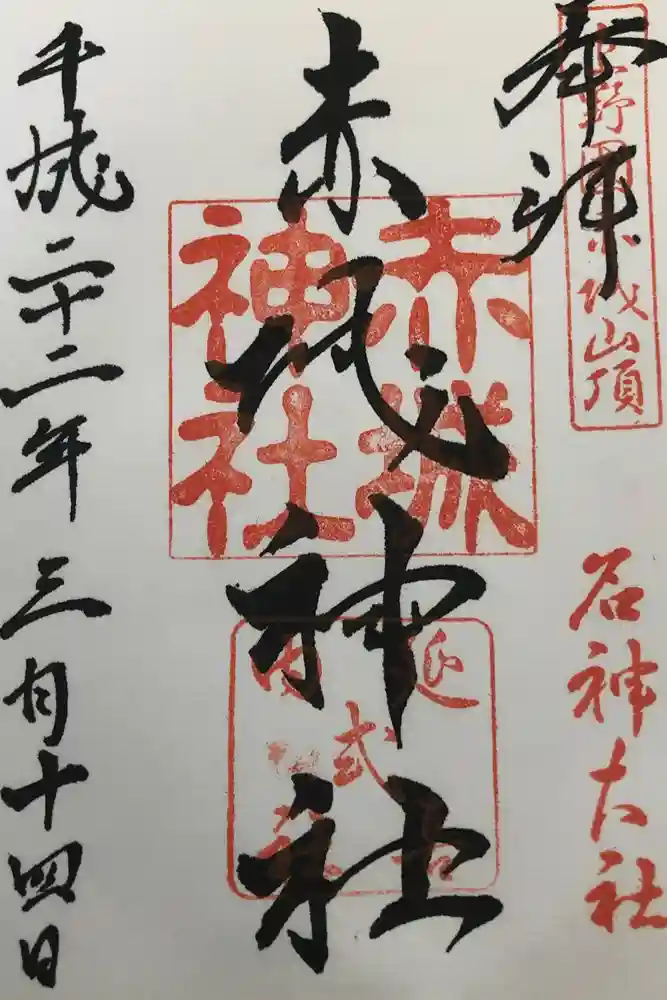 奉拝
上野國赤城山頂
名神大社
赤城神社
赤城
神社
延
式
内
平成二十二年三月十四日